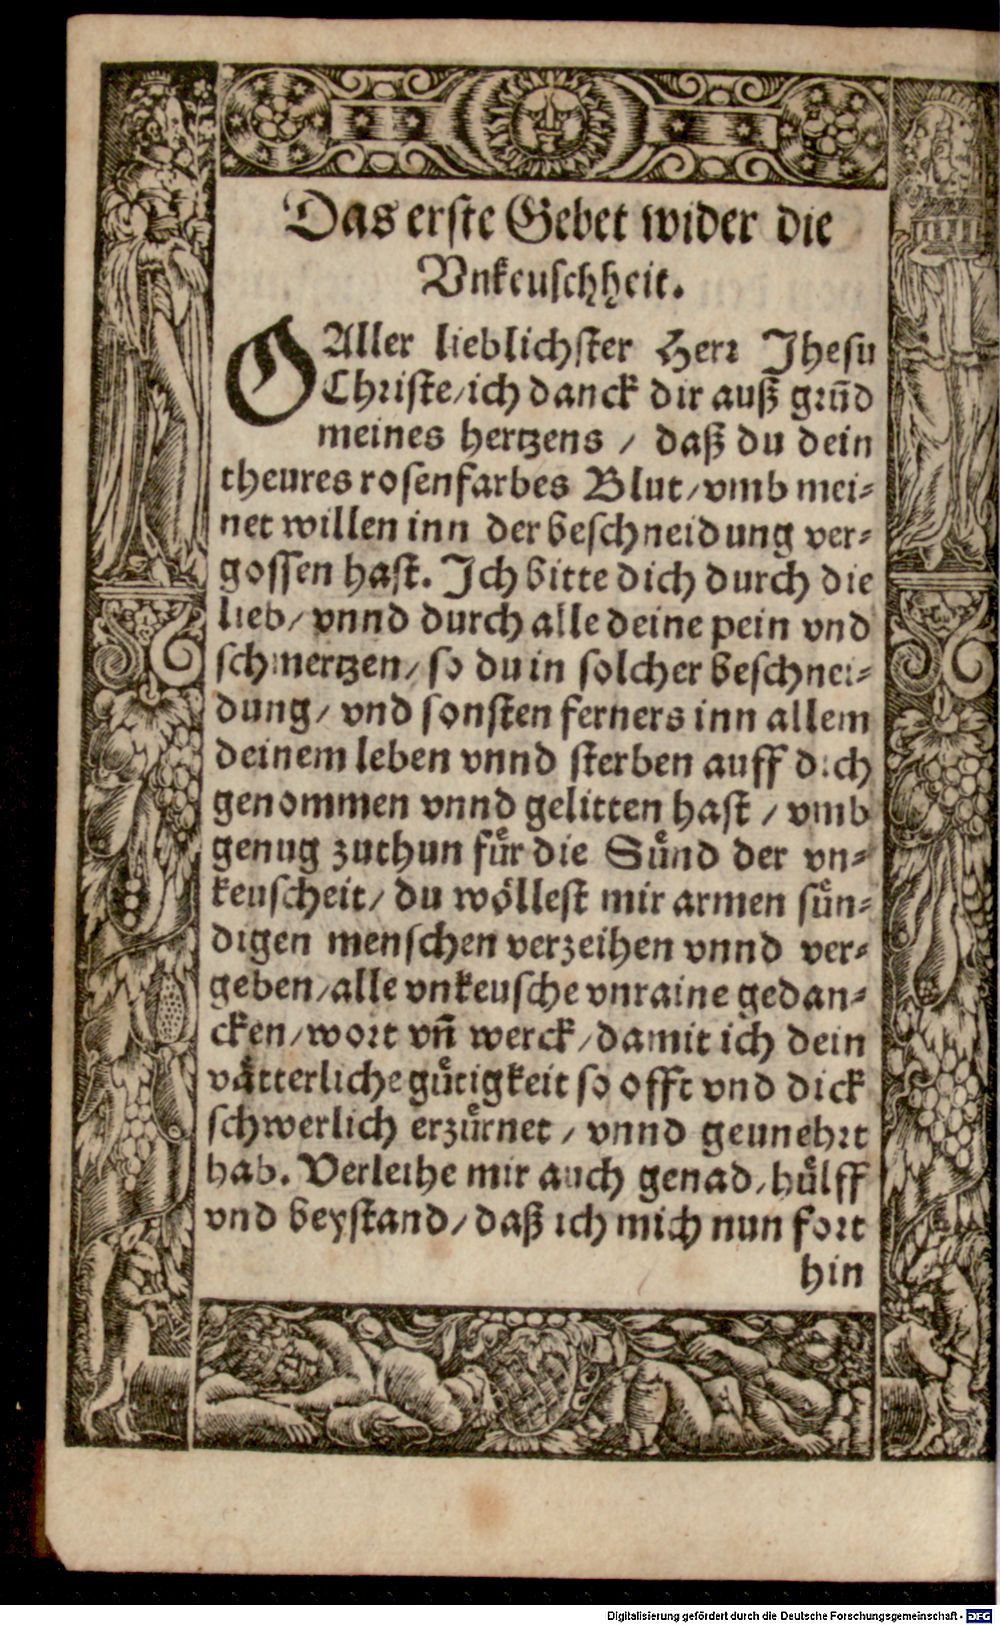 Das erste Gebet wider die
Vnkeuschheit.
O Aller lieblichster Herr Jhesu
Christe/ich danck dir auß grũd
meines hertzens / daß du dein
theures rosenfarbes Blut/vmb mei-
net willen inn der beschneidung ver-
gossen hast. Jch bitte dich durch die
lieb/ vnnd durch alle deine pein vnd
schmertzen/so du in solcher beschnei-
dung/ vnd sonsten ferners inn allem
deinem leben vnnd sterben auff dich
genommen vnnd gelitten hast / vmb
genug zuthun fuͤr die Suͤnd der vn-
keuscheit/ du woͤllest mir armen suͤn-
digen menschen verzeihen vnnd ver-
geben/alle vnkeusche vnraine gedan-
cken/wort vñ werck/damit ich dein
vaͤtterliche guͤtigkeit so offt vnd dick
schwerlich erzuͤrnet / vnnd geunehrt
hab. Verleihe mir auch genad/huͤlff
vnd beystand/daß ich mich nun fort
hin
Digitalisierung gefördert durch die Deutsche Forschungsgemeinschaft - DFG